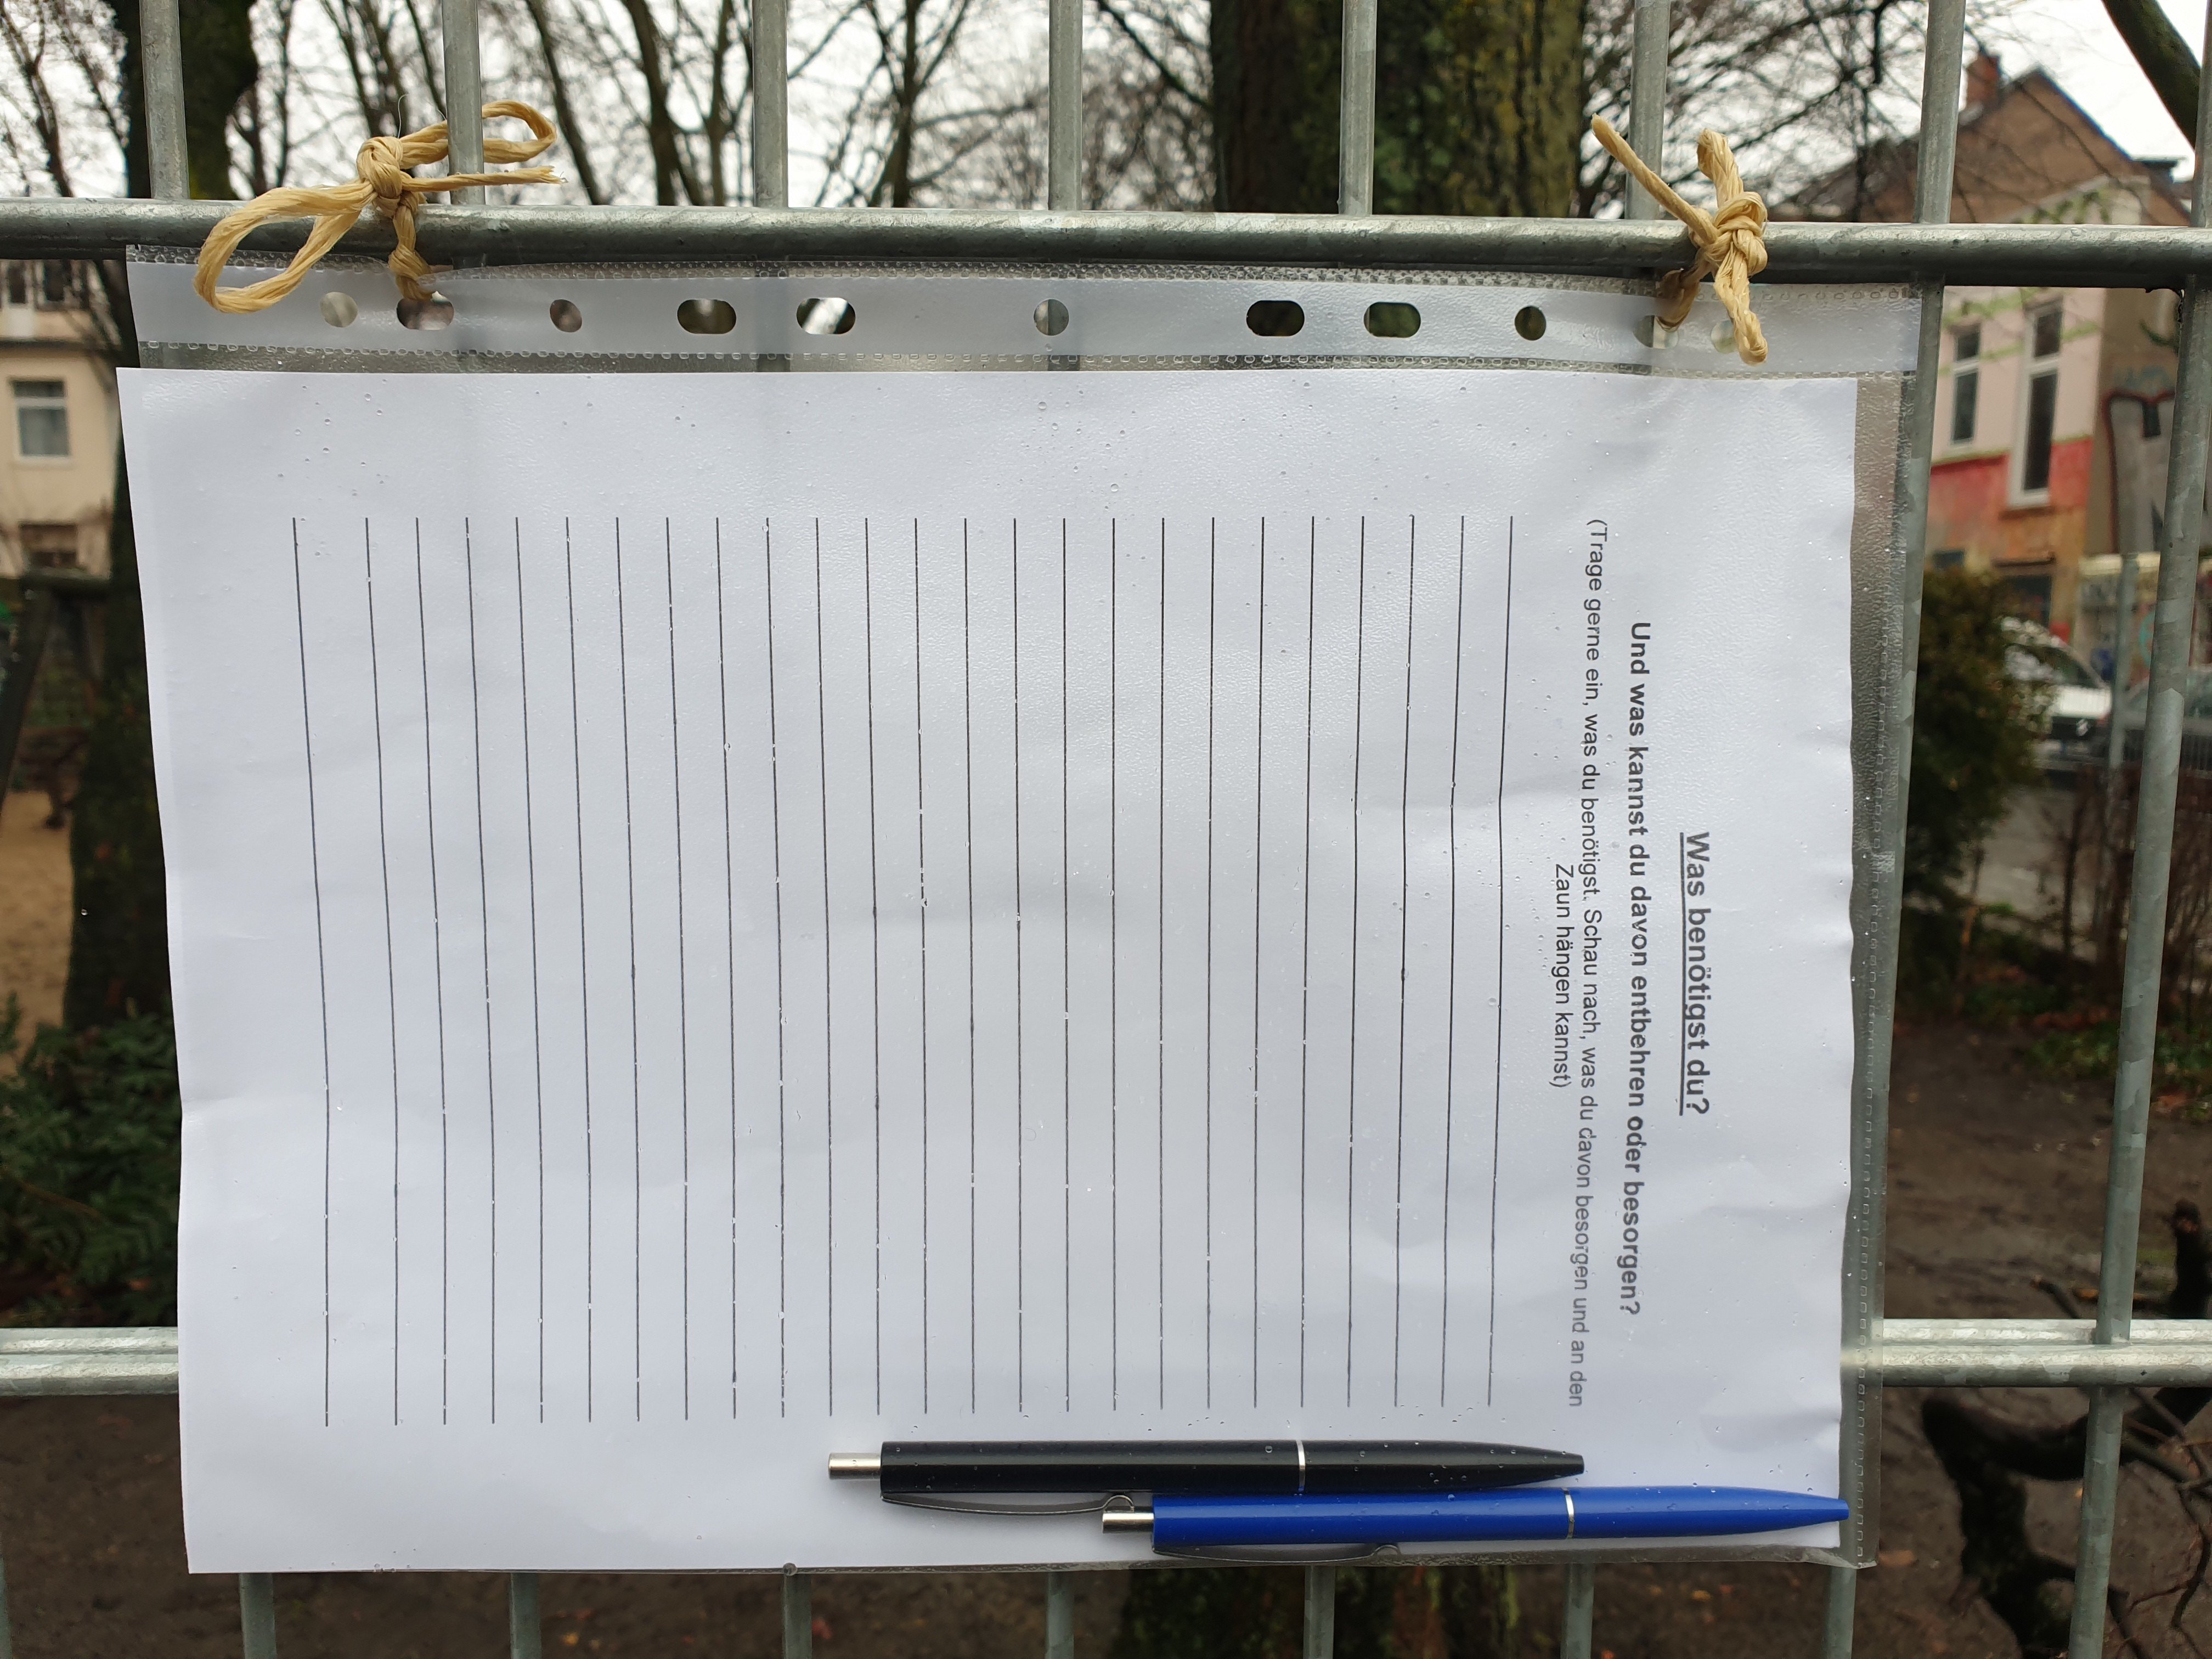 Was benötigst du?
Und was kannst du davon entbehren oder besorgen?
(Trage gerne ein, was du benötigst. Schau nach, was du davon besorgen und an den
Zaun hängen kannst)